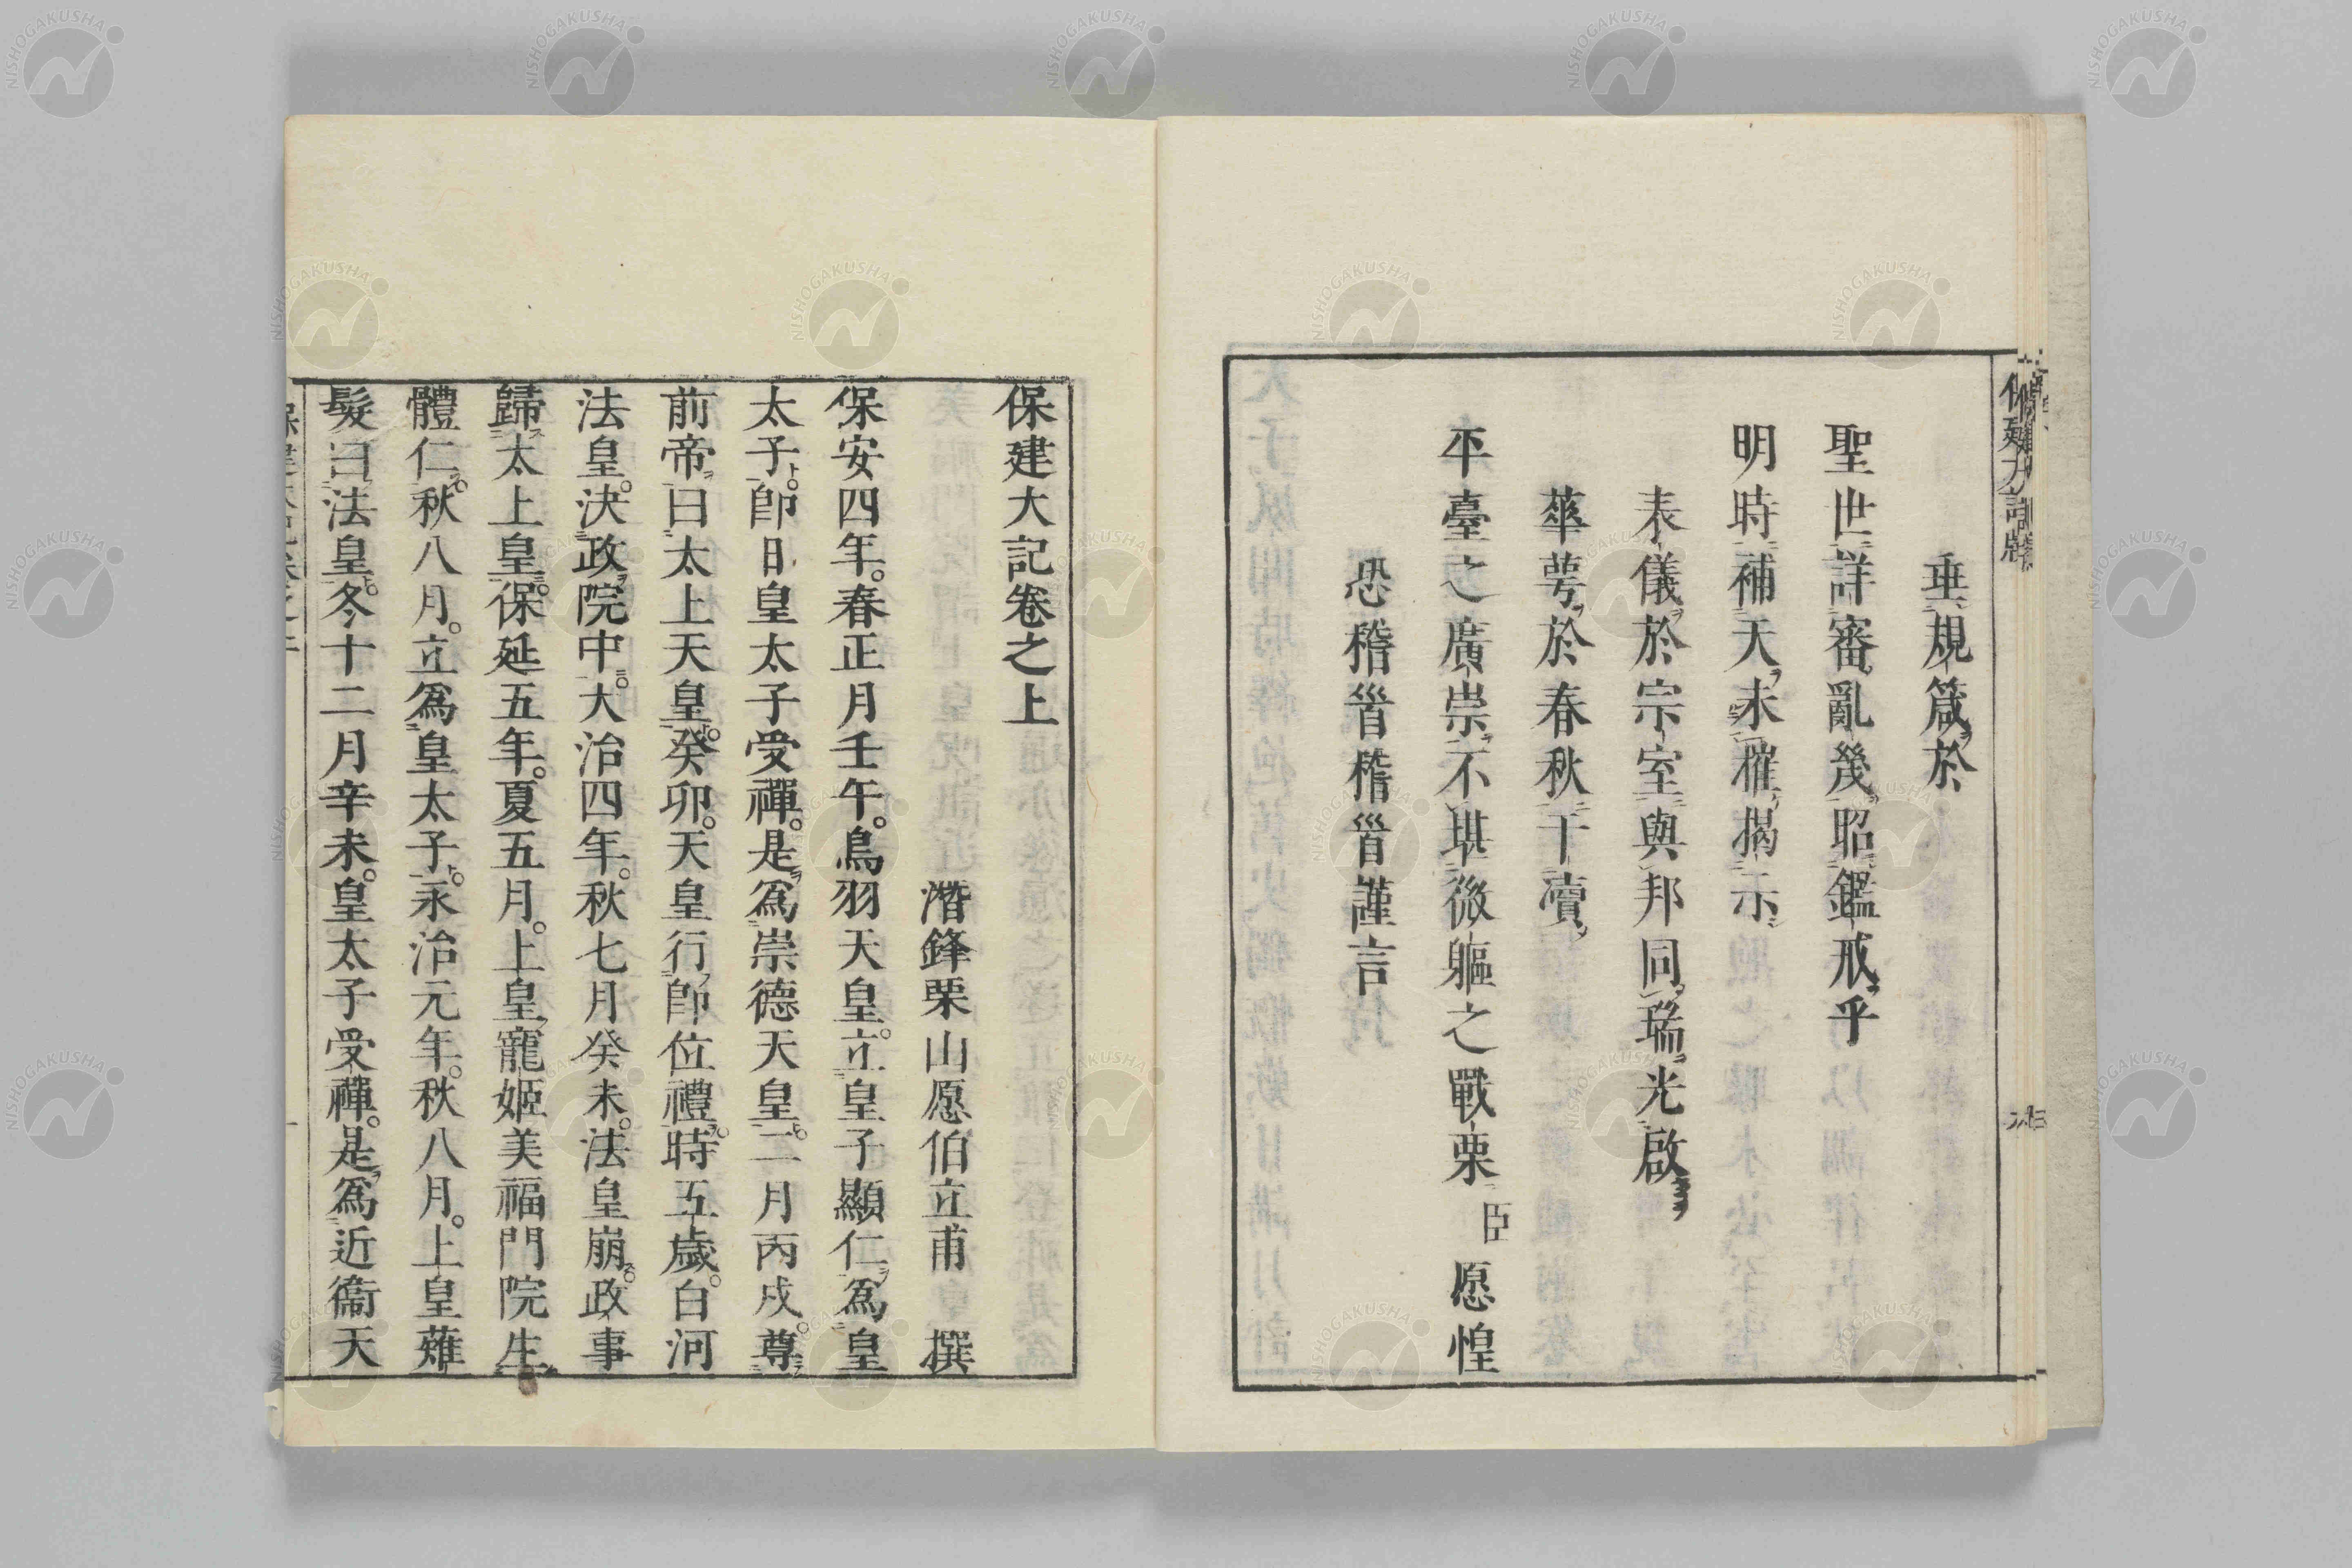 垂規箴於
聖世詳審亂幾昭鑑戒乎
明時補天未榷揭示
表儀於宗室與邦同瑞光啟
蕐萼於春秋干瀆
平臺之廣崇不堪微軀之戰栗臣愿惶
恐稽首稽首謹言
保建大記卷之上
潛鋒栗山愿伯立甫 撰
保安四年。春正月壬午。鳥羽天皇。立皇子顯仁爲皇
太子。卽日皇太子受禪。是爲崇德天皇。二月丙戌。尊
前帝曰太上天皇。癸卯。天皇行卽位禮。時五歲。白河
法皇。決政院中。大治四年。秋七月癸未。法皇崩。政事
歸太上皇。保延五年。夏五月。上皇寵姬美福門院生
體仁。秋八月。立爲皇太子。永治元年。秋八月。上皇薙
髮曰法皇。冬十二月辛未。皇太子受禪。是爲近衞天
NISHOGAKUSHA